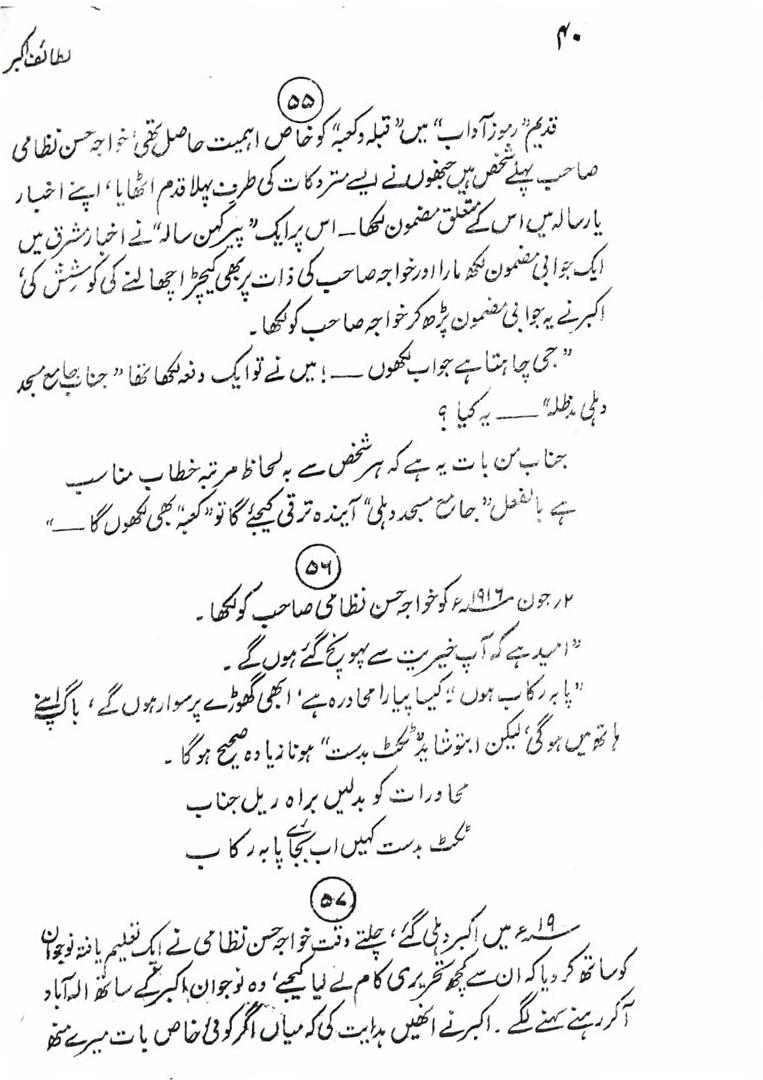 ۴۰
لطائف اکبر
۵۵
قدیم "رموز آداب" میں "قبلہ و کعبہ" کو خاص اہمیت حاصل تھی، خواجہ حسن نظامی
صاحب پہلے شخص ہیں جنھوں نے ایسے متروکات کی طرف پہلا قدم اٹھایا، اپنے اخبار
یا رسالہ میں اس کے متعلق مضمون لکھا۔ اس پر ایک "پیر کہن سالہ" نے اخبار مشرق میں
ایک جوابی مضمون لکھ مارا اور خواجہ صاحب کی ذات پر بھی کیچڑ اچھالنے کی کوشش کی،
اکبر نے یہ جوابی مضمون پڑھ کر خواجہ صاحب کو لکھا۔
"جی چاہتا ہے جواب لکھوں ــــ! میں نے تو ایک دفعہ لکھا تھا "جناب جامع مسجد
دہلی مدظلہ" ــــ یہ کیا؟
جناب من بات یہ ہے کہ ہر شخص سے بہ لحاظ مرتبہ خطاب مناسب
ہے بالفعل "جامع مسجد دہلی" آیندہ ترقی کیجئے گا تو "کعبہ" بھی لکھوں گا ــــ"
۵۶
۲ر جون ۱۹۱۶ء کو خواجہ حسن نظامی صاحب کو لکھا۔
"امید ہے کہ آپ خیریت سے پہونچ گئے ہوں گے۔
"پا بہ رکاب ہوں" کیسا پیارا محاورہ ہے، ابھی گھوڑے پر سوار ہوں گے، باگ اپنے
ہاتھ میں ہو گی، لیکن اب تو شاید "ٹکٹ بدست" ہونا زیادہ صحیح ہو گا۔
محاورات کو بدلیں براہ ریل جناب
ٹکٹ بدست کہیں اب بجائے پا بہ رکاب
۵۷
۱۹ء میں اکبر دہلی گئے، چلتے وقت خواجہ حسن نظامی نے ایک تعلیم یافتہ نوجوان
کو ساتھ کر دیا کہ ان سے کچھ تحریری کام لے لیا کیجیے، وہ نوجوان اکبر کے ساتھ الہ آباد
آکر رہنے سہنے لگے۔ اکبر نے انھیں ہدایت کی کہ میاں اگر کوئی خاص بات میرے منھ